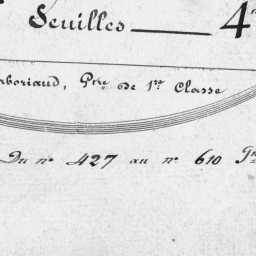 Feuilles — 4
rboriaud, Ptre de 1re Classe
Du no 427 au no 610